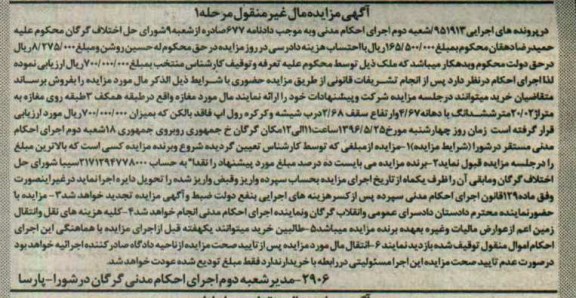 آگهی مزایده مال غیر منقول مرحله۱
در پرونده های اجرایی۹۵۱۹۱۳/شعبه دوم اجرای احکام مدنی وبه موجب دادنامه ۶۷۷صادره از شعبه۹شورای حل اختلاف گرگان محکوم علیه
حمیدرضا دهقان محکوم بمبلغ ۱۶۵/۵۰۰/۰۰۰ریال بااحتساب هزینه دادرسی در روز مزایده در حق محکوم له حسین روشن ومبلغ ۸/۲۷۵/۰۰۰ریال
در حق دولت محکوم وبدهکار میباشد که ملک ذیل توسط محکوم علیه تعرفه وتوقیف کارشناس منتخب بمبلغ۷۰۰/۰۰۰/۰۰۰ریال ارزیابی نموده
لذا اجرای احکام در نظر دارد پس از انجام تشریفات قانونی از طریق مزایده حضوری با شرایط ذیل الذکر مال مورد مزایده را بفروش برساند
متقاضیان خرید میتوانند در جلسه مزایده شرکت وپیشنهادات خود را ارائه نمایند مال مورد مغازه واقع در طبقه همکف ۳طبقه روی مغازه به
متراژ۲۰/۰۲متر ششدانگ با دهانه۴/۶۷وارتفاع سقف ۲/۶۸درب شیشه وکرکره رول اپ فاقد بالکن که بمیزان ۷۰۰/۰۰۰/۰۰۰ریال مورد ارزیابی
قرار گرفته است زمان روز چهارشنبه مورخ۱۳۹۶/۵/۲۵ساعت۱۱الی۱۲مکان گرگان خ جمهوری روبروی جمهوری ۱۸شعبه دوم اجرای احکام
مدنی مستقر در شورا (شرایط مزایده)۱-مزایده از مبلغی که توسط کارشناس تعیین گردیده شروع وبرنده مزایده کسی است که بالاترین مبلغ
را در جلسه مزایده قبول نماید۲-برنده مزایده می بایست ده درصد مبلغ مورد پیشنهاد را نقدا" به حساب ۲۱۷۱۲۹۴۷۷۸۰۰۰سیبا شورای حل
اختلاف گرگان ومابقی آن را ظرف یکماه از تاریخ اجرای مزایده بحساب سپرده واریز وقبض واریز شده را تحویل دایره اجرا نماید در غیر اینصورت
وفق ماده۱۲۹قانون اجرای احکام مدنی سپرده پس از کسر هزینه های اجرایی بنفع دولت ضبط وآگهی مزایده تجدید خواهد شد۳-مزایده با
حضور نماینده محترم دادستان دادسرای عمومی وانقلاب گرگان ونماینده اجرای احکام مدنی انجام خواهد شد۴-کلیه هزینه های نقل وانتقال
زمین اعم از عوارض مالیات وغیره بعهده برنده مزایده میباشد۵-طالبین خرید میتوانند یکهفته قبل از اجرای مزایده با هماهنگی این اجرای
احکام اموال منقول توقیف شده بازدید نمایند ۶-انتقال مال مورد مزایده پس از تایید صحت مزایده از ناحیه دادگاه صادر کننده اجرائیه خواهد بود
در صورت عدم تایید صحت مزایده این اجرا مسئولیتی در رابطه با خریدار ندارد فقط مبلغ تودیع شده عودت خواهد شد.
۲۹۰۶-مدیر شعبه دوم اجرای احکام مدنی گرگان در شورا-پارسا